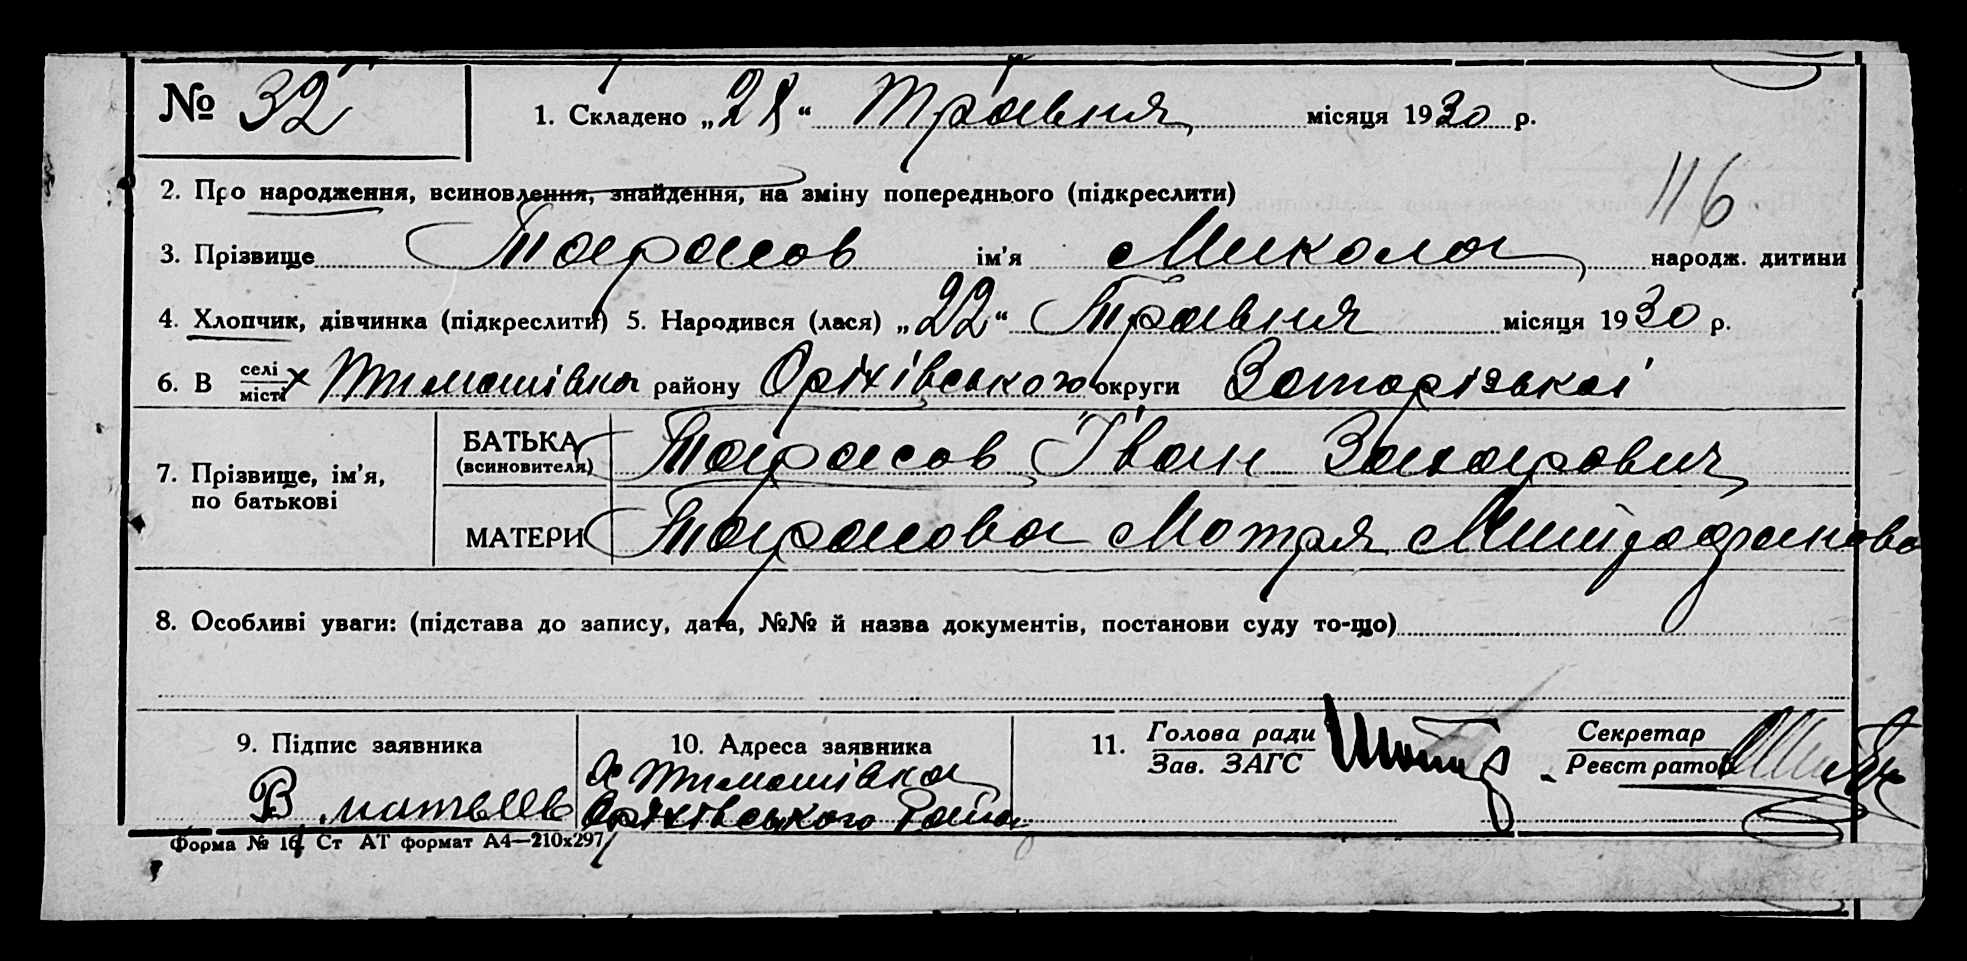 № 32 1. Складено „28“ Травня місяця 1930 р.
2. Про народження, всиновлення, знайдення, на зміну попереднього (підкреслити)
116
3. Прізвище Тарасов ім'я Микола народж. дитини
4. Хлопчик, дівчинка (підкреслити) 5. Народився (лася) „22“ Травня місяця 1930 р.
6. В селі місті х Тимошівка району Оріхівського округи Запорізької
7. Прізвище, ім'я, по батькові
БАТЬКА (всиновителя) Тарасов Іван Захарович
МАТЕРИ Тарасова Мотря
8. Особливі уваги: (підстава до запису, дата, №№ й назва документів, постанови суду то-що)
9. Підпис заявника
10. Адреса заявника
11. Голова ради Зав. ЗАГС
Секретар Реєстратор
В. матвеев
с Тимошівка
Оріхівського Району
Форма № 16 Ст АТ формат А4—210х297